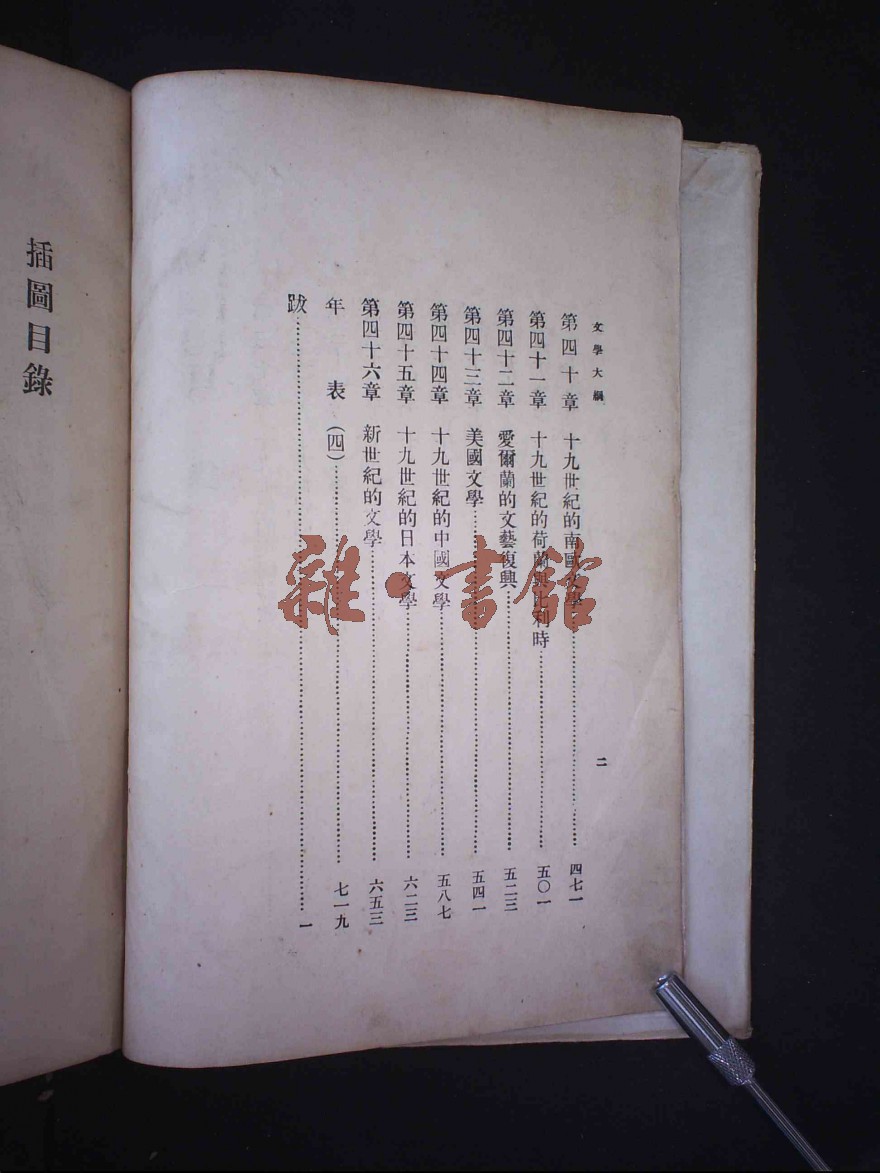 文學大綱
第四十章 十九世紀的南歐文學……四七一
第四十一章 十九世紀的荷蘭與比利時……五〇一
第四十二章 愛爾蘭的文藝復興……五二三
第四十三章 美國文學……五四一
第四十四章 十九世紀的中國文學……五八七
第四十五章 十九世紀的日本文學……六二三
第四十六章 新世紀的文學……六五三
年 表(四)……七一九
跋……一
二
插圖目錄
雜·書館